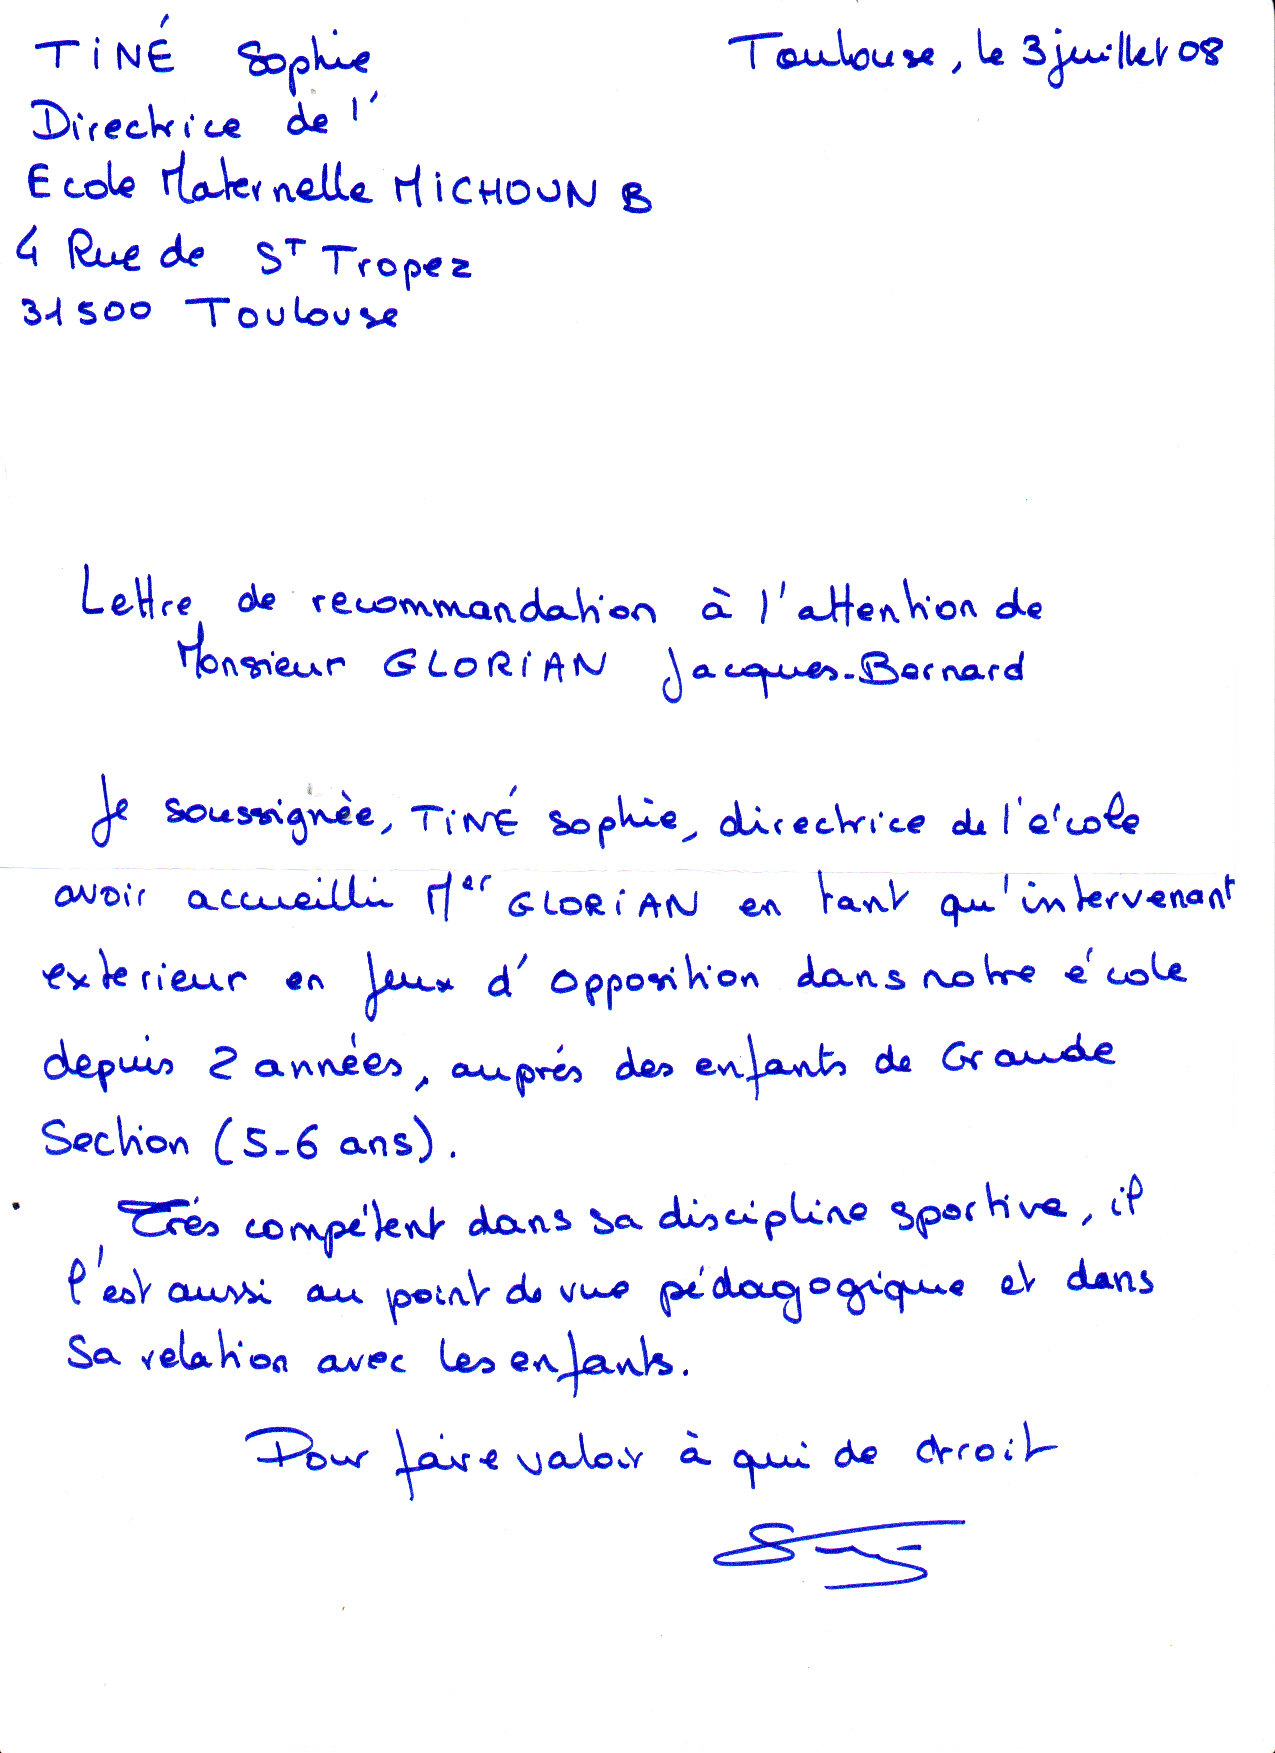 TINÉ Sophie
Toulouse, le 3 juillet 08
Directrice de l'
Ecole Maternelle MICHOUN B
4 Rue de St Tropez
31500 Toulouse
Lettre de recommandation à l'attention de
Monsieur GLORIAN Jacques-Bernard
Je soussignée, TINÉ Sophie, directrice de l'école
avoir accueilli Mer GLORIAN en tant qu'intervenant
exterieur en Jeux d'opposition dans notre école
depuis 2 années, auprés des enfants de Grande
Section (5-6 ans).
Trés compétent dans sa discipline sportive, il
l'est aussi au point de vue pédagogique et dans
sa relation avec les enfants.
Pour faire valoir à qui de droit